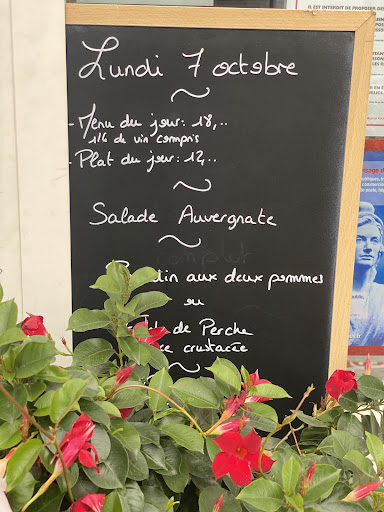 Lundi 7 octobre
- Menu du jour: 18,..
1/4 de vin compris
- Plat du jour: 12,..
Salade Auvergnate
aux deux pommes
ou
de Perche
crustacée
IL EST INTERDIT DE PROPOSER DES